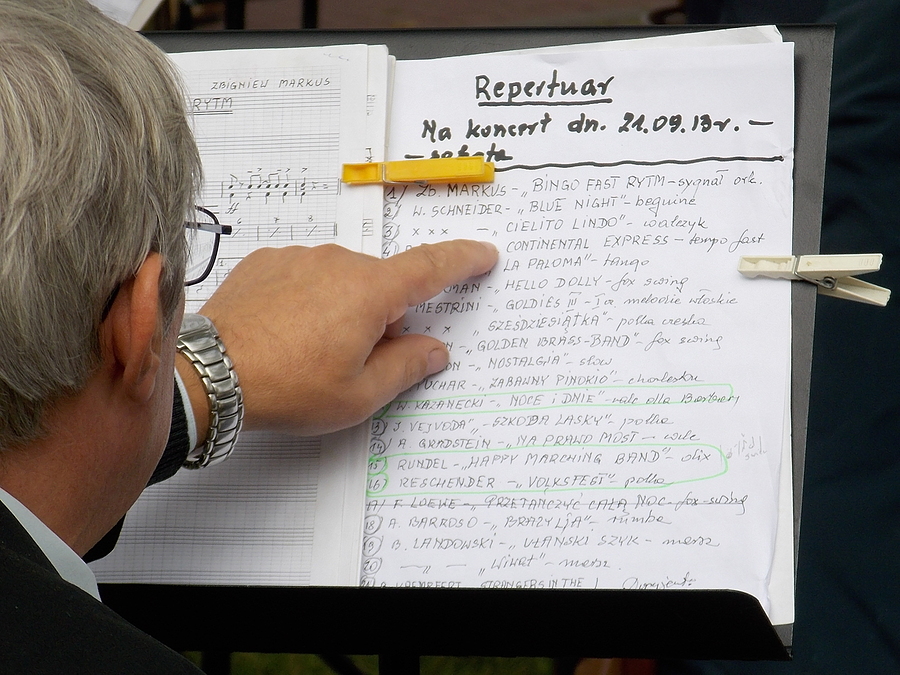 ZBIGNIEW MARKUS
RYTM
Repertuar
Na koncert dn. 21.09.13r. —
— sobota
1) Zb. MARKUS - „BINGO FAST RYTM - sygnał ork.
2) W. SCHNEIDER - „BLUE NIGHT" - beguine
3) x x x — „ CIELITO LINDO" - walczyk
4) CONTINENTAL EXPRESS - tempo fast
LA PALOMA" - tango
MAN - „HELLO DOLLY - fox swing
MESTRINI - „GOLDIES III - melodie włoskie
x x x „SZEŚĆDZIESIĄTKA" - polka czeska
N - „GOLDEN BRASS-BAND" - fox swing
ON - „NOSTALGIA" - slow
TUCHAR - „ZABAWNY PINOKIO - charleston
W. KAZANECKI - „NOCE i DNIE" - walc dla Barbary
13) J. VEJVODA „- SZKODA LASKY" - polka
14) A. GRADSTEIN - „NA PRAWO MOST — walc
15) RUNDEL - „HAPPY MARCHING BAND" - dix
16) RESCHENDER - „VOLKSFEST" - polka
17) F. LOEWE - „PRZETAŃCZYĆ CAŁĄ NOC - fox-swing
18) A. BARROSO - „BRAZYLJA" - rumba
19) B. LANDOWSKI - „UŁAŃSKI SZYK - marsz
20) — „ — „WIWAT" - marsz
KAEMPFERT STRANGERS IN THE